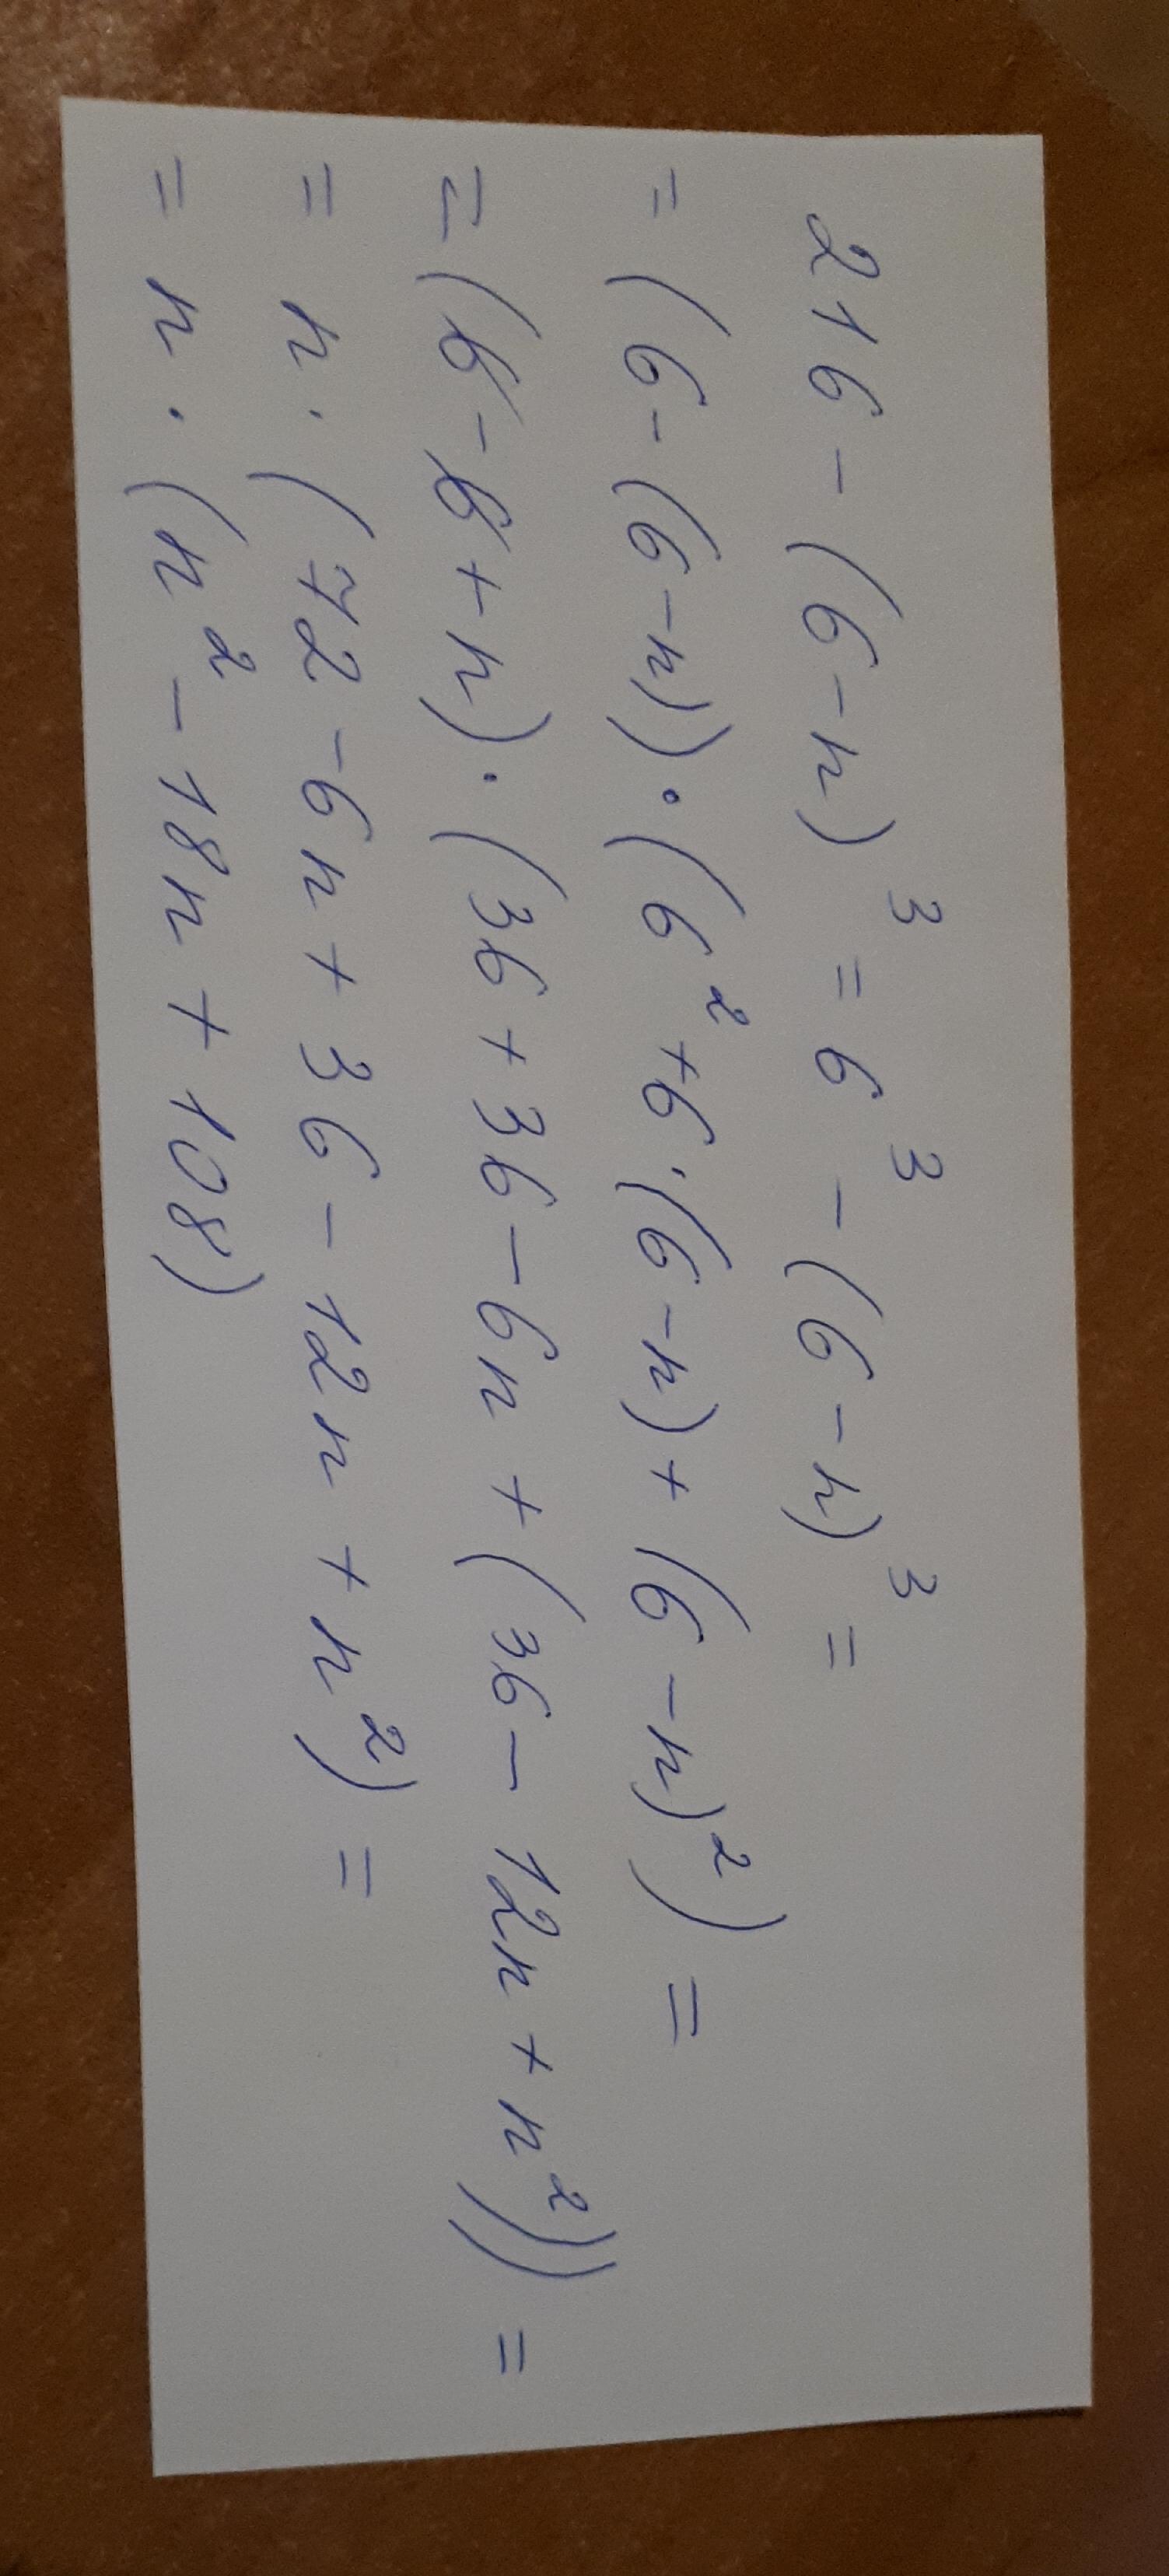 216 - (6 - n)³ = 6³ - (6 - n)³ =
= (6 - (6 - n)) · (6² + 6 · (6 - n) + (6 - n)²) =
= (6 - 6 + n) · (36 + 36 - 6n + (36 - 12n + n²)) =
= n · (72 - 6n + 36 - 12n + n²) =
= n · (n² - 18n + 108)